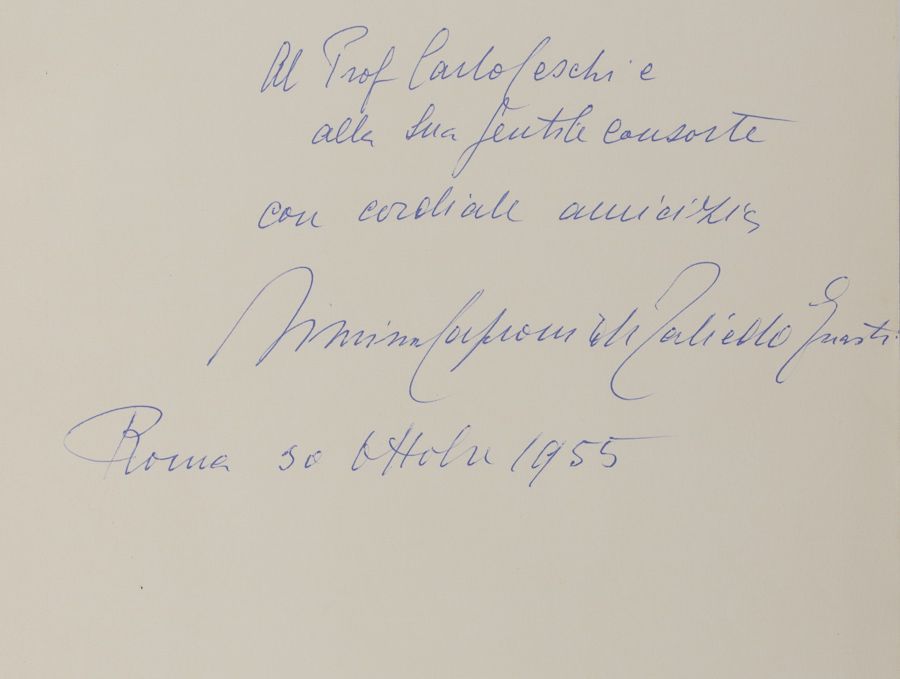 Al Prof Carlo Ceschi e
alla Sua gentile consorte
con cordiale amicizia
Timina Caproni di Taliedo Guasti
Roma 30 Ottobre 1955